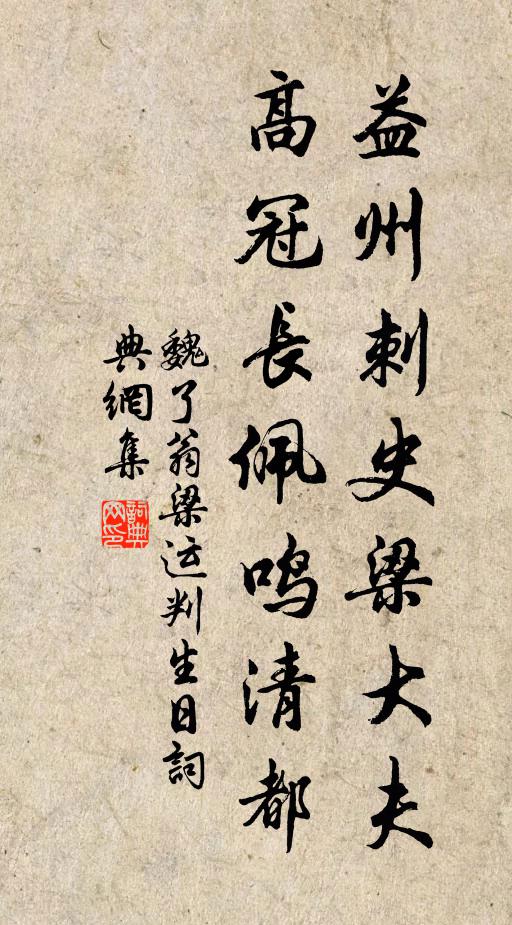 益州刺史梁大夫
高冠長佩鳴清都
魏了翁梁运判生日詞
典網集
詞典網印